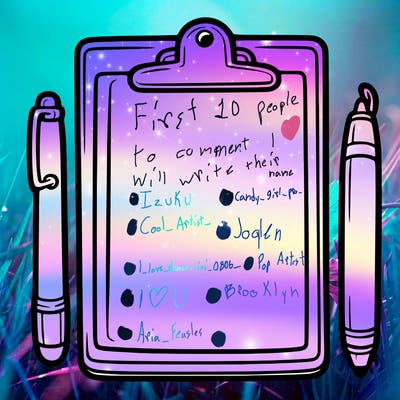 First 10 people
to comment I
will write their
name
Izuku
Candy-girl-po-
Cool_Artist_
Joglen
Pop Artist
I ♡ U
Brooklyn
Aria_Feusles